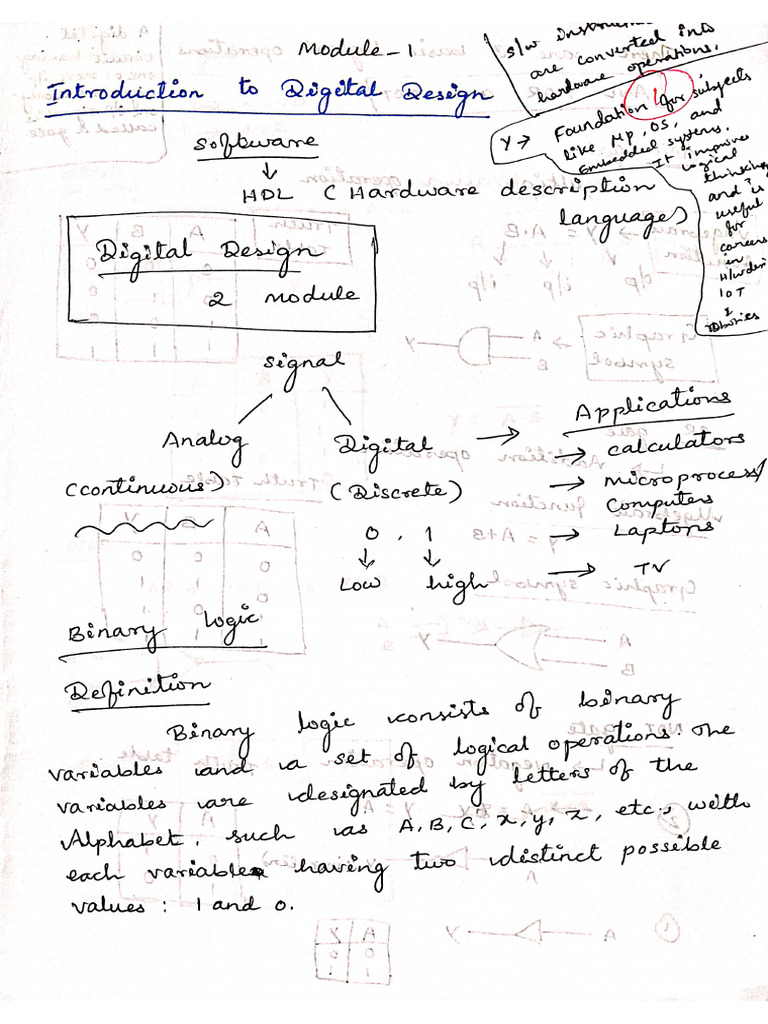 Module - 1
Introduction to Digital Design
s/w
are converted into
hardware operations.
Y → Foundation for subjects
like Mp, OS, and
Embedded systems.
It improves
logical
thinking
and is
useful
for
careers
in
IOT
Software
↓
HDL (Hardware description
languages)
Digital Design
2 module
signal
Analog
(continuous)
Digital
(Discrete)
0 , 1
↓ ↓
Low high
→ Applications
→ calculators
→ microprocess/
Computers
→ Laptops
→ TV
Binary logic
Definition
Binary logic consists of binary
variables and a set of logical operations. The
variables are designated by letters of the
Alphabet, such as A, B, C, x, y, z, etc., with
each variable having two distinct possible
values : 1 and 0.